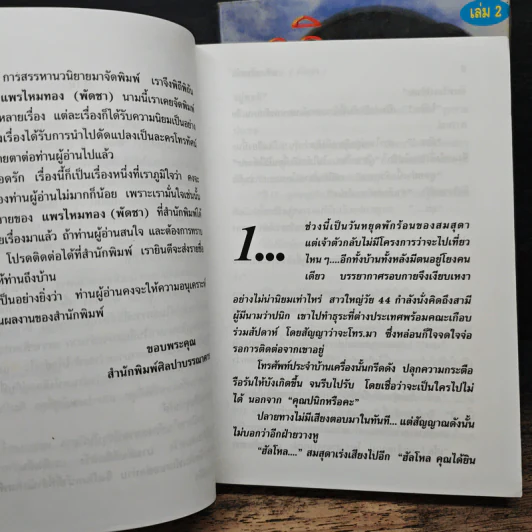 เล่ม 2
การสรรหานวนิยายมาจัดพิมพ์ เราจึงพิถีพิถัน
แพรไหมทอง (พัดชา) นามนี้เราเคยจัดพิมพ์
หลายเรื่อง แต่ละเรื่องก็ได้รับความนิยมเป็นอย่าง
งเรื่องได้รับการนำไปดัดแปลงเป็นละครโทรทัศน์
ายตาต่อท่านผู้อ่านไปแล้ว
อดรัก เรื่องนี้ก็เป็นเรื่องหนึ่งที่เราภูมิใจว่า คงจะ
องท่านผู้อ่านไม่มากก็น้อย เพราะเรามั่นใจเช่นนั้น
ายของ แพรไหมทอง (พัดชา) ที่สำนักพิมพ์ได้
ยเรื่องมาแล้ว ถ้าท่านผู้อ่านสนใจ และต้องการทราบ
โปรดติดต่อได้ที่สำนักพิมพ์ เรายินดีจะส่งรายชื่อ
ให้ท่านถึงบ้าน
เป็นอย่างยิ่งว่า ท่านผู้อ่านคงจะให้ความอนุเคราะห์
นผลงานของสำนักพิมพ์
ขอบพระคุณ
สำนักพิมพ์ศิลปาบรรณาคาร
1...
ช่วงนี้เป็นวันหยุดพักร้อนของสมสุดา
แต่เจ้าตัวกลับไม่มีโครงการว่าจะไปเที่ยว
ไหน ๆ....อีกทั้งบ้านทั้งหลังมีตนอยู่โยงคน
เดียว บรรยากาศรอบกายจึงเงียบเหงา
อย่างไม่น่านิยมเท่าไหร่ สาวใหญ่วัย 44 กำลังนั่งคิดถึงสามี
ผู้มีนามว่าปนิก เขาไปทำธุระที่ต่างประเทศพร้อมคณะเกือบ
ร่วมสัปดาห์ โดยสัญญาว่าจะโทร.มา ซึ่งหล่อนก็ใจจดใจจ่อ
รอการติดต่อจากเขาอยู่
โทรศัพท์ประจำบ้านเครื่องนั้นกรีดดัง ปลุกความกระตือ
รือร้นให้บังเกิดขึ้น จนรีบไปรับ โดยเชื่อว่าจะเป็นใครไปไม่
ได้ นอกจาก “คุณปนิกหรือคะ”
ปลายทางไม่มีเสียงตอบมาในทันที... แต่สัญญาณดังนั้น
ไม่บอกว่าอีกฝ่ายวางหู
“ฮัลโหล....” สมสุดาเร่งเสียงไปอีก “ฮัลโหล คุณได้ยิน